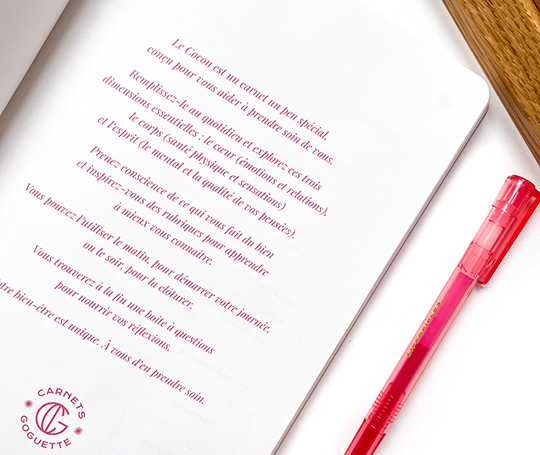 Le Cocon est un carnet un peu spécial,
conçu pour vous aider à prendre soin de vous.
Remplissez-le au quotidien et explorez ces trois
dimensions essentielles : le cœur (émotions et relations),
le corps (santé physique et sensations)
et l'esprit (le mental et la qualité de vos pensées).
Prenez conscience de ce qui vous fait du bien
et inspirez-vous des rubriques pour apprendre
à mieux vous connaître.
Vous pouvez l'utiliser le matin, pour démarrer votre journée,
ou le soir, pour la clôturer.
Vous trouverez à la fin une boîte à questions
pour nourrir vos réflexions.
otre bien-être est unique. À vous d'en prendre soin.
CARNETS
CG
GOGUETTE